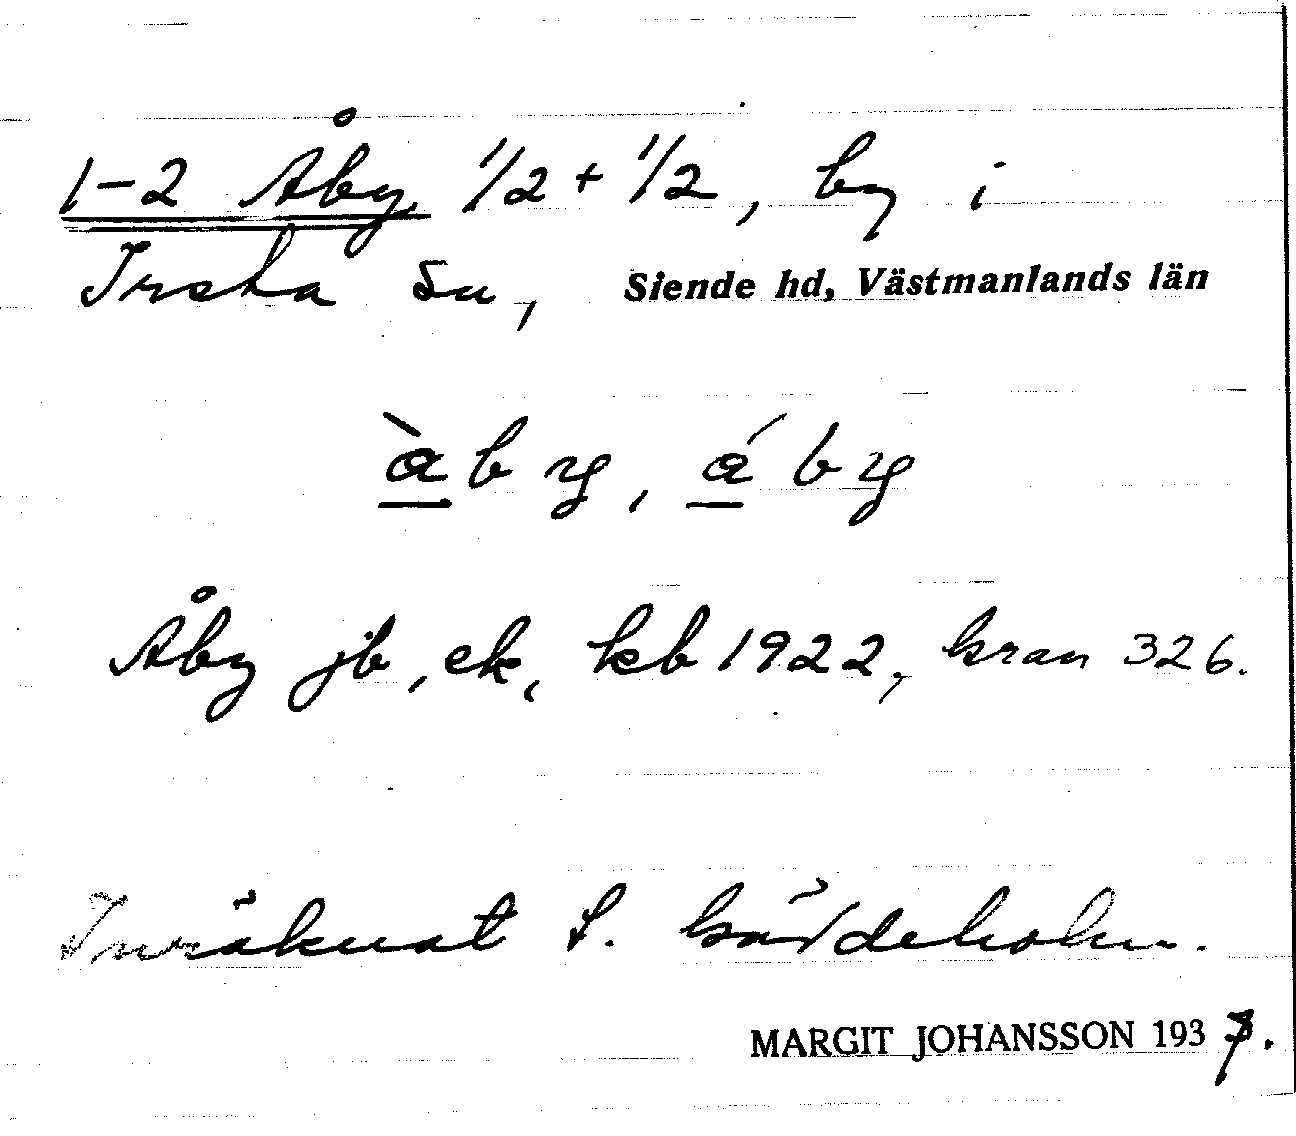 1-2 Åby 1/2 + 1/2, by i
Irsta sn, Siende hd, Västmanlands län
àby, áby
Åby jb, ek, kb 1922, kran 326.
Inräknat f. Gäddeholm.
MARGIT JOHANSSON 1937.